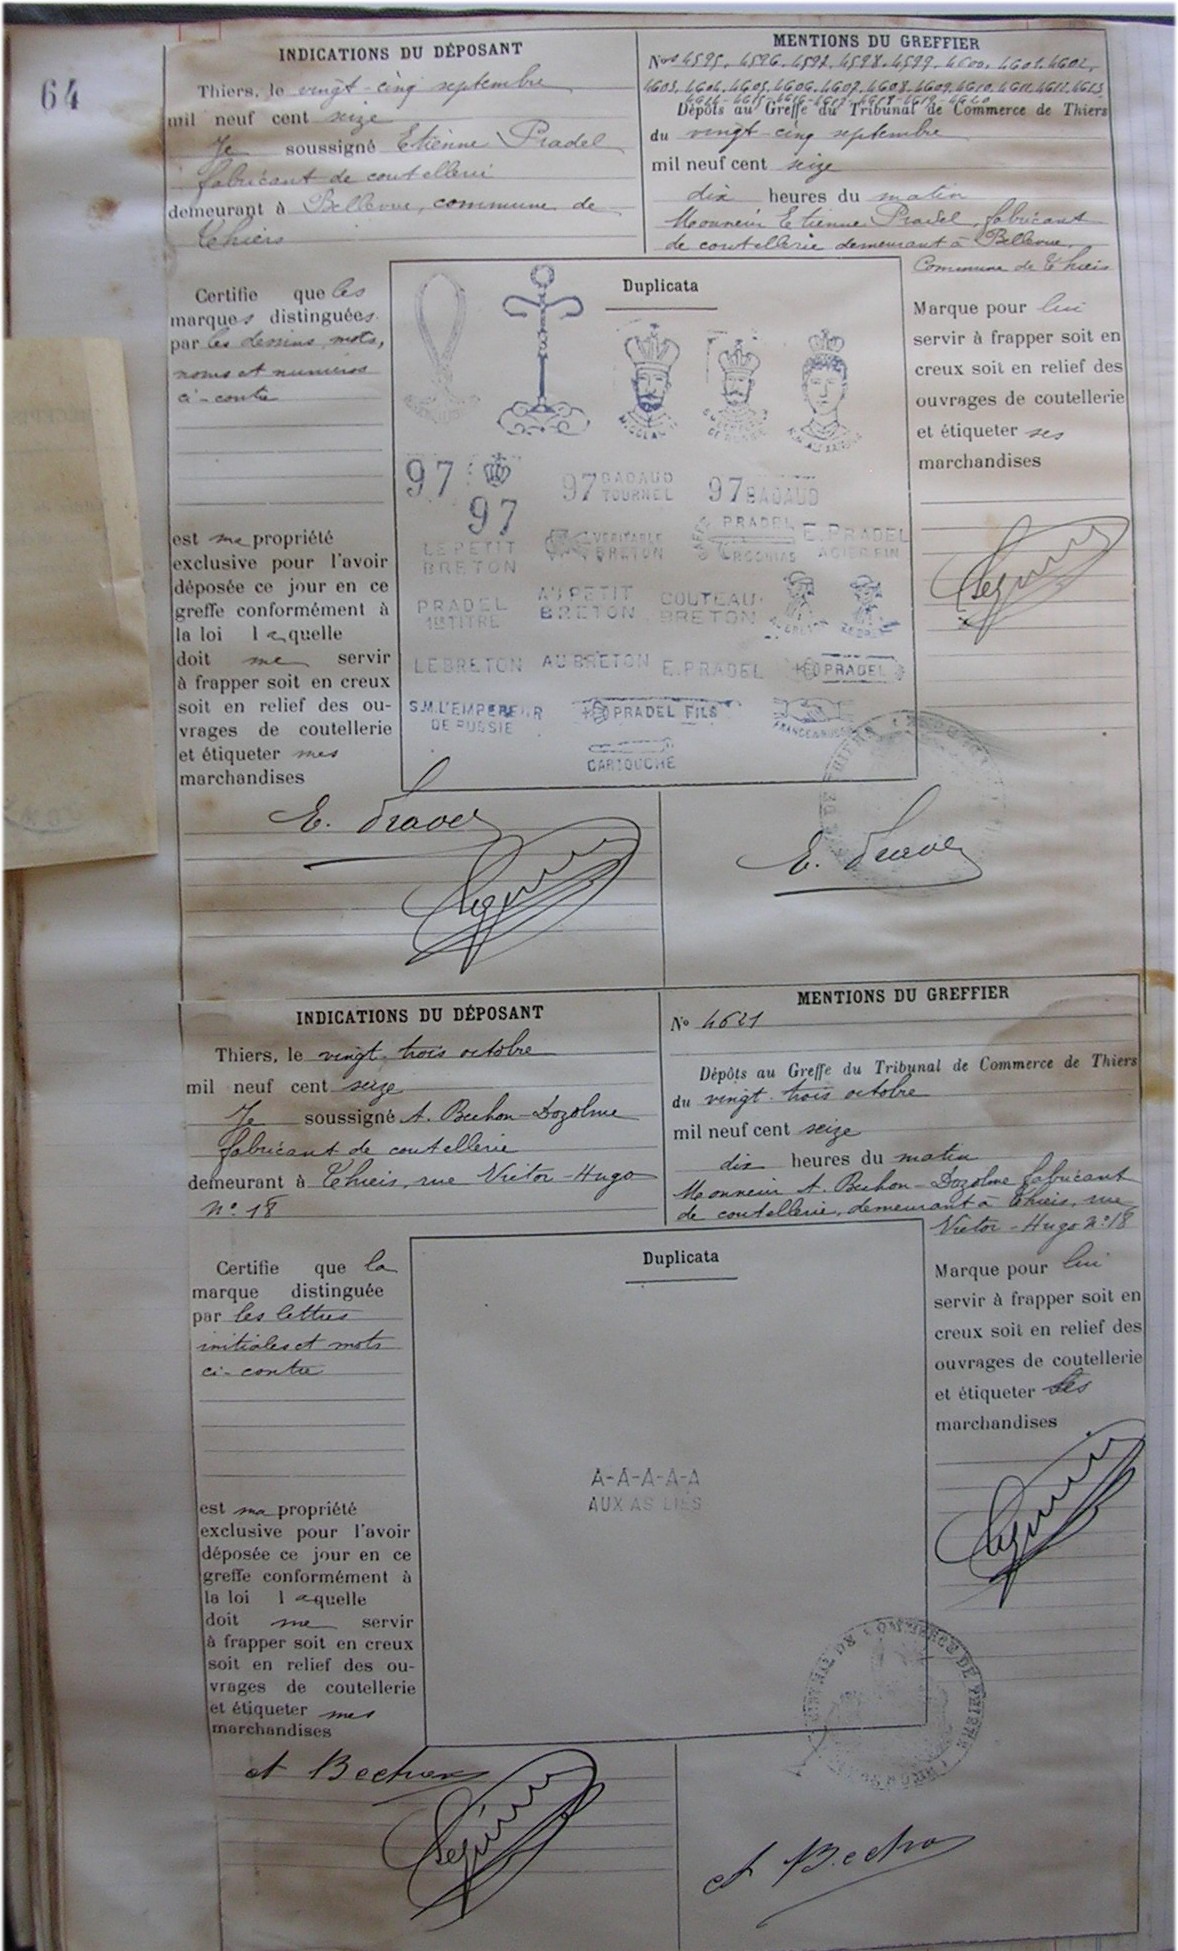 64
INDICATIONS DU DÉPOSANT
Thiers, le vingt-cinq septembre
mil neuf cent seize
Je soussigné Etienne Pradel
fabricant de coutellerie
demeurant à Bellevue, commune de
Thiers
MENTIONS DU GREFFIER
Nos 4595. 4596. 4597. 4598. 4599. 4600. 4601. 4602.
4603. 4604. 4605. 4606. 4607. 4608. 4609. 4610. 4611. 4612. 4613
4614-4615-4616-4617-4618-4619-4620
Dépôts au Greffe du Tribunal de Commerce de Thiers
du vingt-cinq septembre
mil neuf cent seize
dix heures du matin
Monsieur Etienne Pradel, fabricant
de coutellerie demeurant à Bellevue,
Commune de Thiers
Certifie que les
marques distinguées
par les dessins, mots,
noms et numéros
ci-contre
est ma propriété
exclusive pour l'avoir
déposée ce jour en ce
greffe conformément à
la loi laquelle
doit me servir
à frapper soit en creux
soit en relief des ou-
vrages de coutellerie
et étiqueter mes
marchandises
Duplicata
NICOLAS
97
97
97 BADAUD
TOURNEL
97 BADAUD
LE PETIT
BRETON
VERITABLE
BRETON
PRADEL
E. PRADEL
ACIER FIN
PRADEL
1ER TITRE
AU PETIT
BRETON
COUTEAU
BRETON
LE BRETON
AU BRETON
E. PRADEL
PRADEL
S.M. L'EMPEREUR
DE RUSSIE
PRADEL FILS
CARTOUCHE
Marque pour lui
servir à frapper soit en
creux soit en relief des
ouvrages de coutellerie
et étiqueter ses
marchandises
E. Pradel
E. Pradel
INDICATIONS DU DÉPOSANT
Thiers, le vingt-trois octobre
mil neuf cent seize
Je soussigné A. Bechon-Dozolme
fabricant de coutellerie
demeurant à Thiers, rue Victor-Hugo
No 18
MENTIONS DU GREFFIER
No 4621
Dépôts au Greffe du Tribunal de Commerce de Thiers
du vingt-trois octobre
mil neuf cent seize
dix heures du matin
Monsieur A. Bechon-Dozolme fabricant
de coutellerie, demeurant à Thiers, rue
Victor-Hugo No 18
Certifie que la
marque distinguée
par les lettres
initiales et mots
ci-contre
est ma propriété
exclusive pour l'avoir
déposée ce jour en ce
greffe conformément à
la loi laquelle
doit me servir
à frapper soit en creux
soit en relief des ou-
vrages de coutellerie
et étiqueter mes
marchandises
Duplicata
A-A-A-A-A
AUX AS LIÉS
Marque pour lui
servir à frapper soit en
creux soit en relief des
ouvrages de coutellerie
et étiqueter ses
marchandises
TRIBUNAL DE COMMERCE DE THIERS
A Bechon
A Bechon